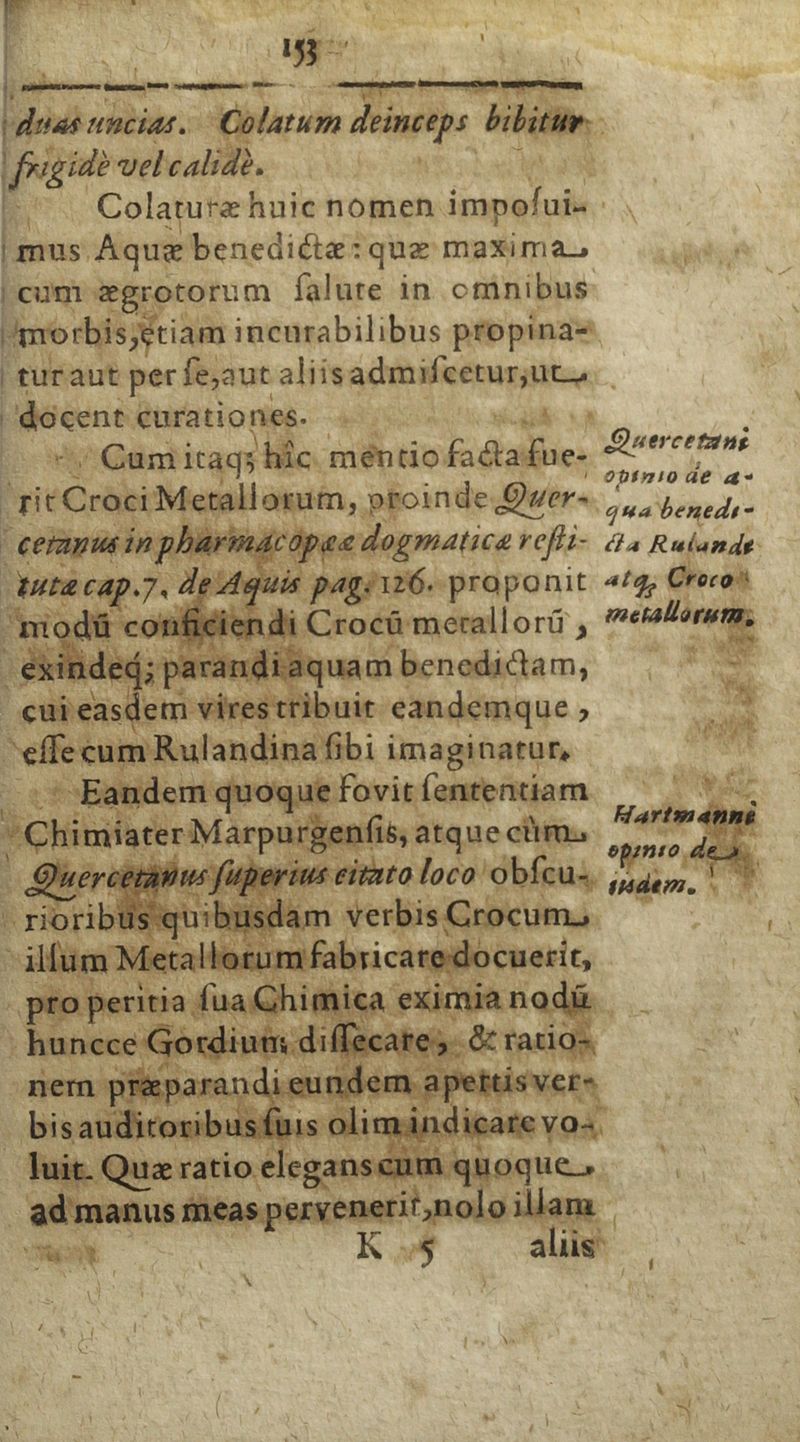 153
duas uncias. Colatum deinceps bibitur
frigidè vel calidè.
Colaturæ huic nomen impoſui-
mus Aquæ benedictæ: quæ maxima
cum ægrotorum ſalute in omnibus
morbis, etiam incurabilibus propina-
tur aut per ſe, aut aliis admiſcetur, ut
docent curationes.
Cum itaq; hîc mentio facta fue-
rit Croci Metallorum, proinde Quer-
cetanus in pharmacopæa dogmaticæ reſti-
tutæ cap. 7. de Aquis pag. 126. proponit
modū conficiendi Crocū metallorū,
exindeq; parandi aquam benedictam,
cui easdem vires tribuit eandemque,
eſſe cum Rulandina ſibi imaginatur.
Quercetani
opinio de a-
qua benedi-
cta Rulandi
atq; Croco
metallorum.
Eandem quoque fovit ſententiam
Chimiater Marpurgenſis, atque cùm
Quercetanus ſuperius citato loco obſcu-
rioribus quibusdam verbis Crocum
illum Metallorum fabricare docuerit,
pro peritia ſua Chimica eximia nodū
huncce Gordium diſſecare, & ratio-
nem præparandi eundem apertis ver-
bis auditoribus ſuis olim indicare vo-
luit. Quæ ratio elegans cum quoque
ad manus meas pervenerit, nolo illam
Hartmanni
opinio de
eadem.
K 5 aliis